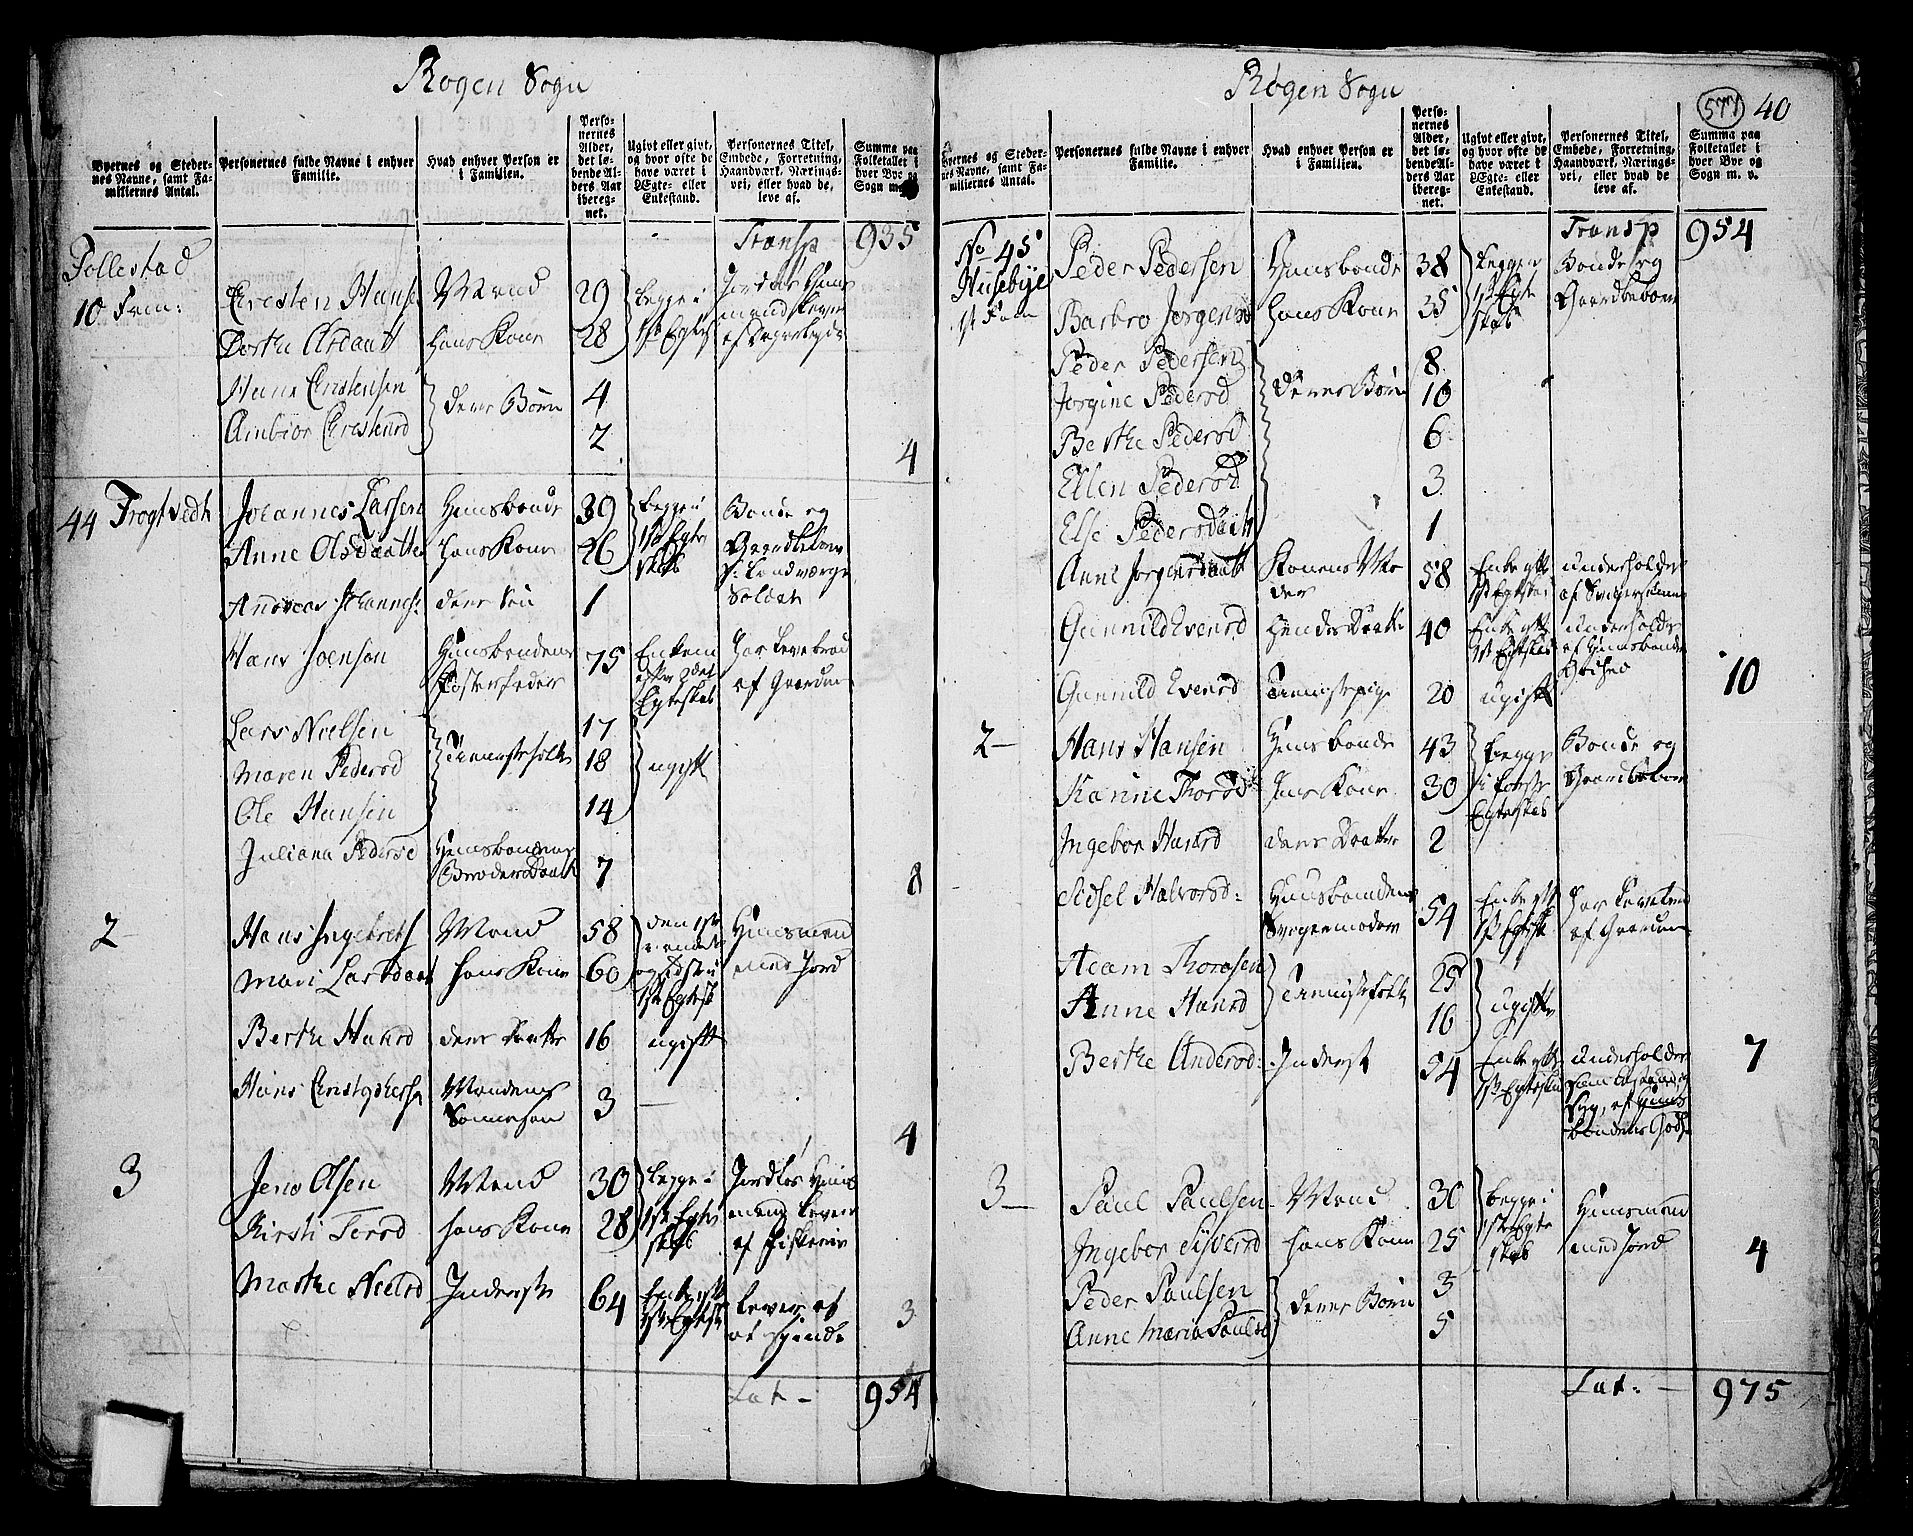 Røgen Sogn
Byernes og Stedernes Navne, samt Familliernes Antal.
Personernes fulde Navne i enhver Familie.
Hvad enhver Person er i Familien.
Personernes Alder, det løbende Alders Aar iberegnet.
Ugivt eller givt, og hvor ofte de have været i Ægte- eller Enkestand.
Personernes Titel, Embede, Forretning, Haandværk, Næringsvei, eller hvad de leve af.
Summa paa Folketallet i hver Bye og Sogn
Transp 935
Follestad
10 Fam:
Christen Hans Mand 29 begge i
Dorthe Olsdaatt hans Kone 28 1ste Egtes
Hans Christensen deres Børn 4
Christensd 2
4
44 Frogtvedt
Johannes Larsen Huusbonde 39 begge i 1ste Egteskab Bonde og Gaardbeboer
Anne Olsdaatter hans Kone 26 Landværge Soldat
Andreas Johannes: deres Søn 1
Hans Joensen Huusbondens Fosterfader 75 Enkem efter 2det Egteskab har Levebrød af Gaarden
Lars Nielsen Tienistefolk 17 ugift
Maren Pedersd 18
Ole Hansen 14
Juliana Pedersd Huusbondens Broders Daatt 7
8
2
Hans Ingebrets Mand 58 Huusmand med Jord
Mari Larsdaat hans Kone 60 1ste Egtesk
Berthe Hansd deres Daatter 16 ugift
Hans Christophersn Mandens Sønnesøn 3 —
4
3
Jens Olsen Mand 30 begge i 1ste Egteskab Jordløs Huusmand lever af Fiskerie
Kirsti Torsd hans Kone 28
Marthe Nielsd Inderste 64 Enke 1ste Egtesk lever af at spinde
3
Lat - 954
Røgen Sogn
577 40
Byernes og Stedernes Navne, samt Familliernes Antal.
Personernes fulde Navne i enhver Familie.
Hvad enhver Person er i Familien.
Personernes Alder, det løbende Alders Aar iberegnet.
Ugivt eller givt, og hvor ofte de have været i Ægte- eller Enkestand.
Personernes Titel, Embede, Forretning, Haandværk, Næringsvei, eller hvad de leve af.
Summa paa Folketallet i hver Bye og Sogn m. v.
Transp 954
No 45 Husebÿe 1st Fam
Peder Pedersen Huusbonde 38 begge i 1ste Egteskab Bonde og Gaardbeboer
Barbro Jørgensd hans Kone 35
Peder Pedersen deres Børn 8
Jorgine Pedersd 10
Berthe Pedersd 6
Ellen Pedersd 3
Else Pedersdaatt 1
Anne Jørgensdaatt Konens Moder 58 underholdes af Svigersønnen
Gunnild Evensd Hendes Daatter 40 underholdes af Huusbonden
Gunnild Evensd Tienistepige 20 ugift
10
2 —
Hans Hansen Huusbonde 43 begge i første Egteskab Bonde og Gaardbeboer
Karine Thorsd hans Kone 30
Ingebor Hansd deres Daatter 2
Sidsel Halvorsd: Huusbondens Svigermoder 54 har Levebrød af Gaarden
Adam Thorasen Tienistefolk 25 ugifte
Anne Hansd 16
Berthe Andersd: Inderst 54 underholder
7
3 —
Paul Paulsen Mand 30 begge i 1ste Egteskab Huusmand med Jord
Ingebor Sÿversd hans Kone 25
4
Peder Paulsen deres Børn 3
Anne Maria Paulsd 5
Lat. — 975